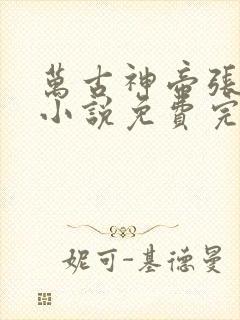 萬古神帝張
小說免費完
妮可-基德曼